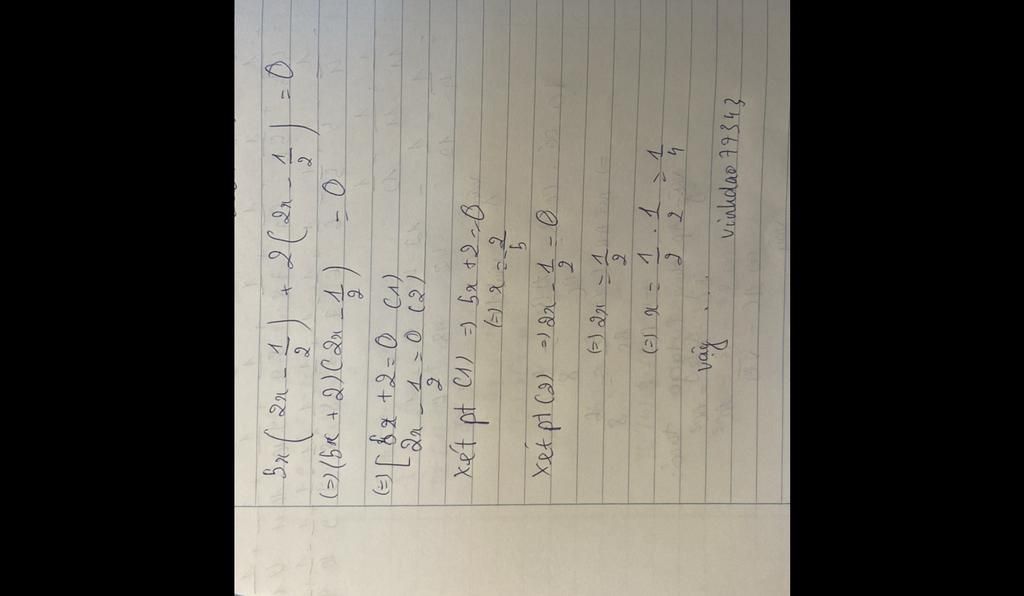 5x(2x - 1/2) + 2(2x - 1/2) = 0
(=) (5x + 2)(2x - 1/2) = 0
(=) [5x + 2 = 0 (1)
2x - 1/2 = 0 (2)
xét pt (1) => 5x + 2 = 0
(=) x = -2/5
xét pt (2) => 2x - 1/2 = 0
(=) 2x = 1/2
(=) x = 1/2 . 1/2 = 1/4
vậy ...
vinhdao79343